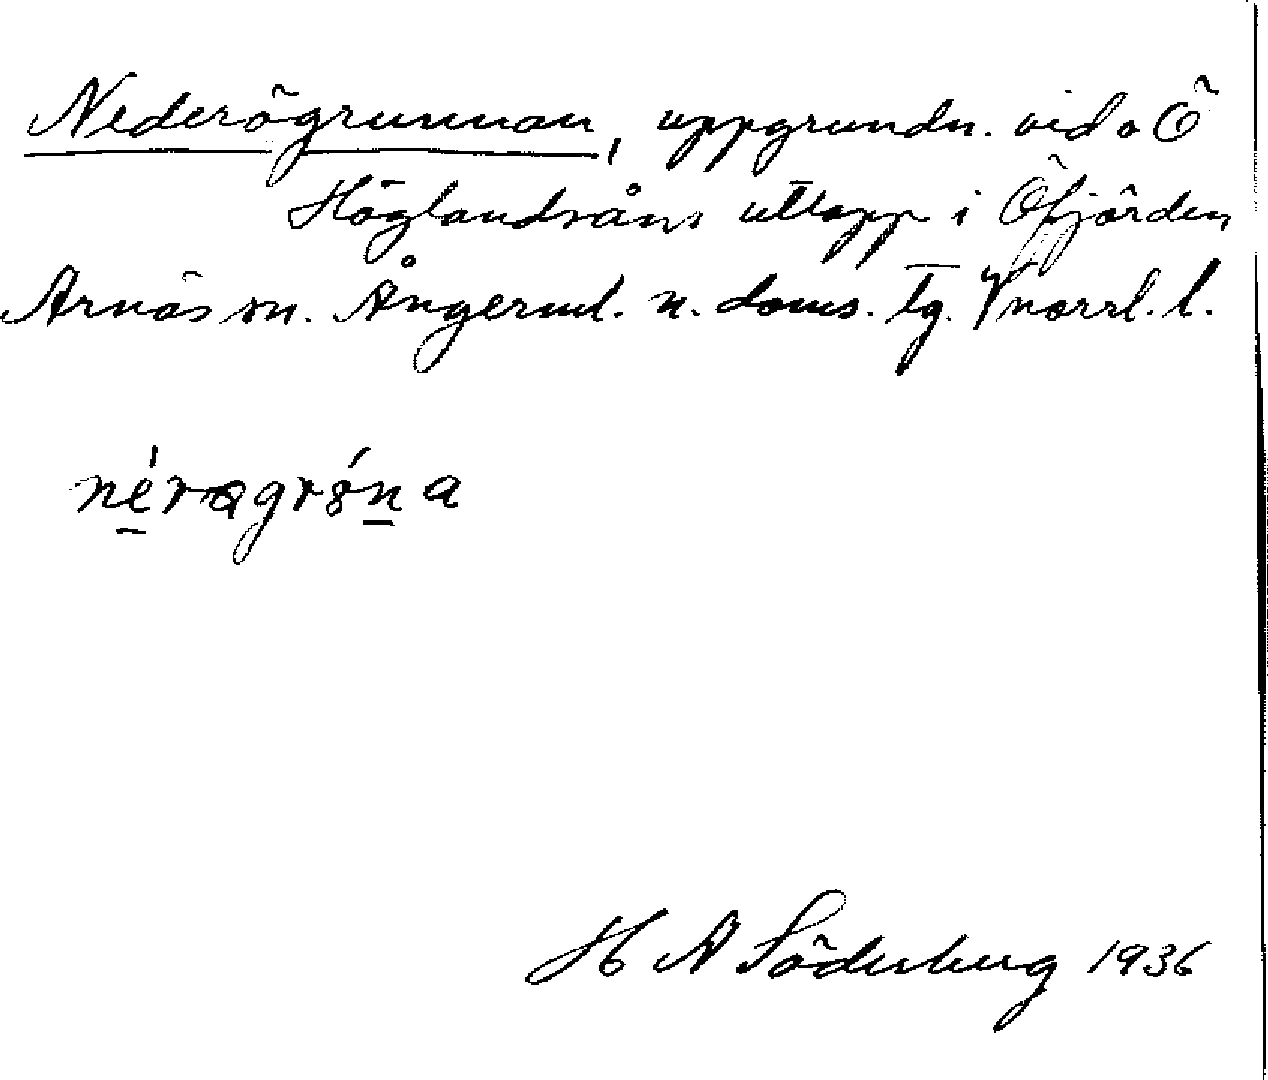 Nederögrunnan, uppgrundn. vid Ö
Höglandsåns utlopp i Öfjärden
Arnäs sn. Ångerml. n. doms. tg. Vnorrl. l.
néragróna
H A Söderberg 1936